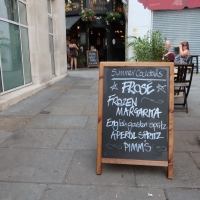 Summer Cocktails
FROSÉ
FROZEN
MARGARITA
English garden spritz
APEROL SPRITZ
PIMMS